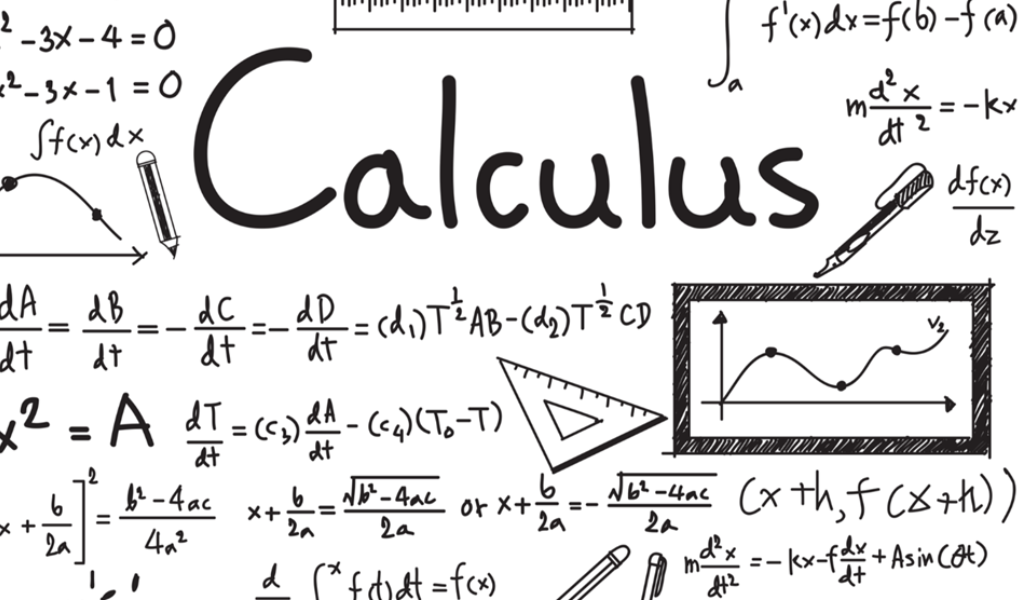 ² -3x-4=0
x²-3x-1=0
∫f(x)dx
Calculus
∫ₐ f'(x)dx=f(b)-f(a)
m d²x/dt² = -kx
df(x)/dz
dA/dt = dB/dt = - dC/dt = - dD/dt = (d₁)T^½ AB-(d₂)T^½ CD
V₂
x² = A
dT/dt = (c₃) dA/dt - (c₄)(T₀-T)
x + b/2a]² = b²-4ac/4a²
x+ b/2a = √b²-4ac/2a or x+ b/2a = - √b²-4ac/2a
(x+h, f(x+h))
d ∫ˣ f(t)dt = f(x)
m d²x/dt² = -kx-f dx/dt + Asin(θt)